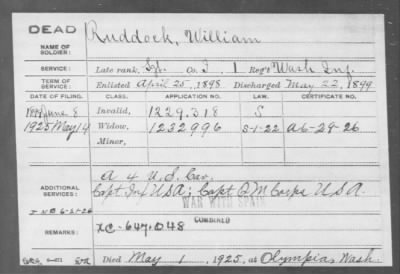 DEAD
NAME OF SOLDIER: Ruddock, William
SERVICE: Late rank, Co. I, 1 Reg't Wash Inf.
TERM OF SERVICE: Enlisted April 25, 1898. Discharged May 22, 1899
DATE OF FILING. CLASS. APPLICATION NO. LAW. CERTIFICATE NO.
1899 June 8 Invalid, 1229.318 S
1925 May 14 Widow, 1232996 S-1-22 A6-29-26
Minor,
ADDITIONAL SERVICES: A 4 U.S. Cav.
Capt Inf USA; Capt Q M Corps U.S.A.
WAR WITH SPAIN
COMBINED
REMARKS: XC-647.048
Died May 1, 1925, at Olympia, Wash.